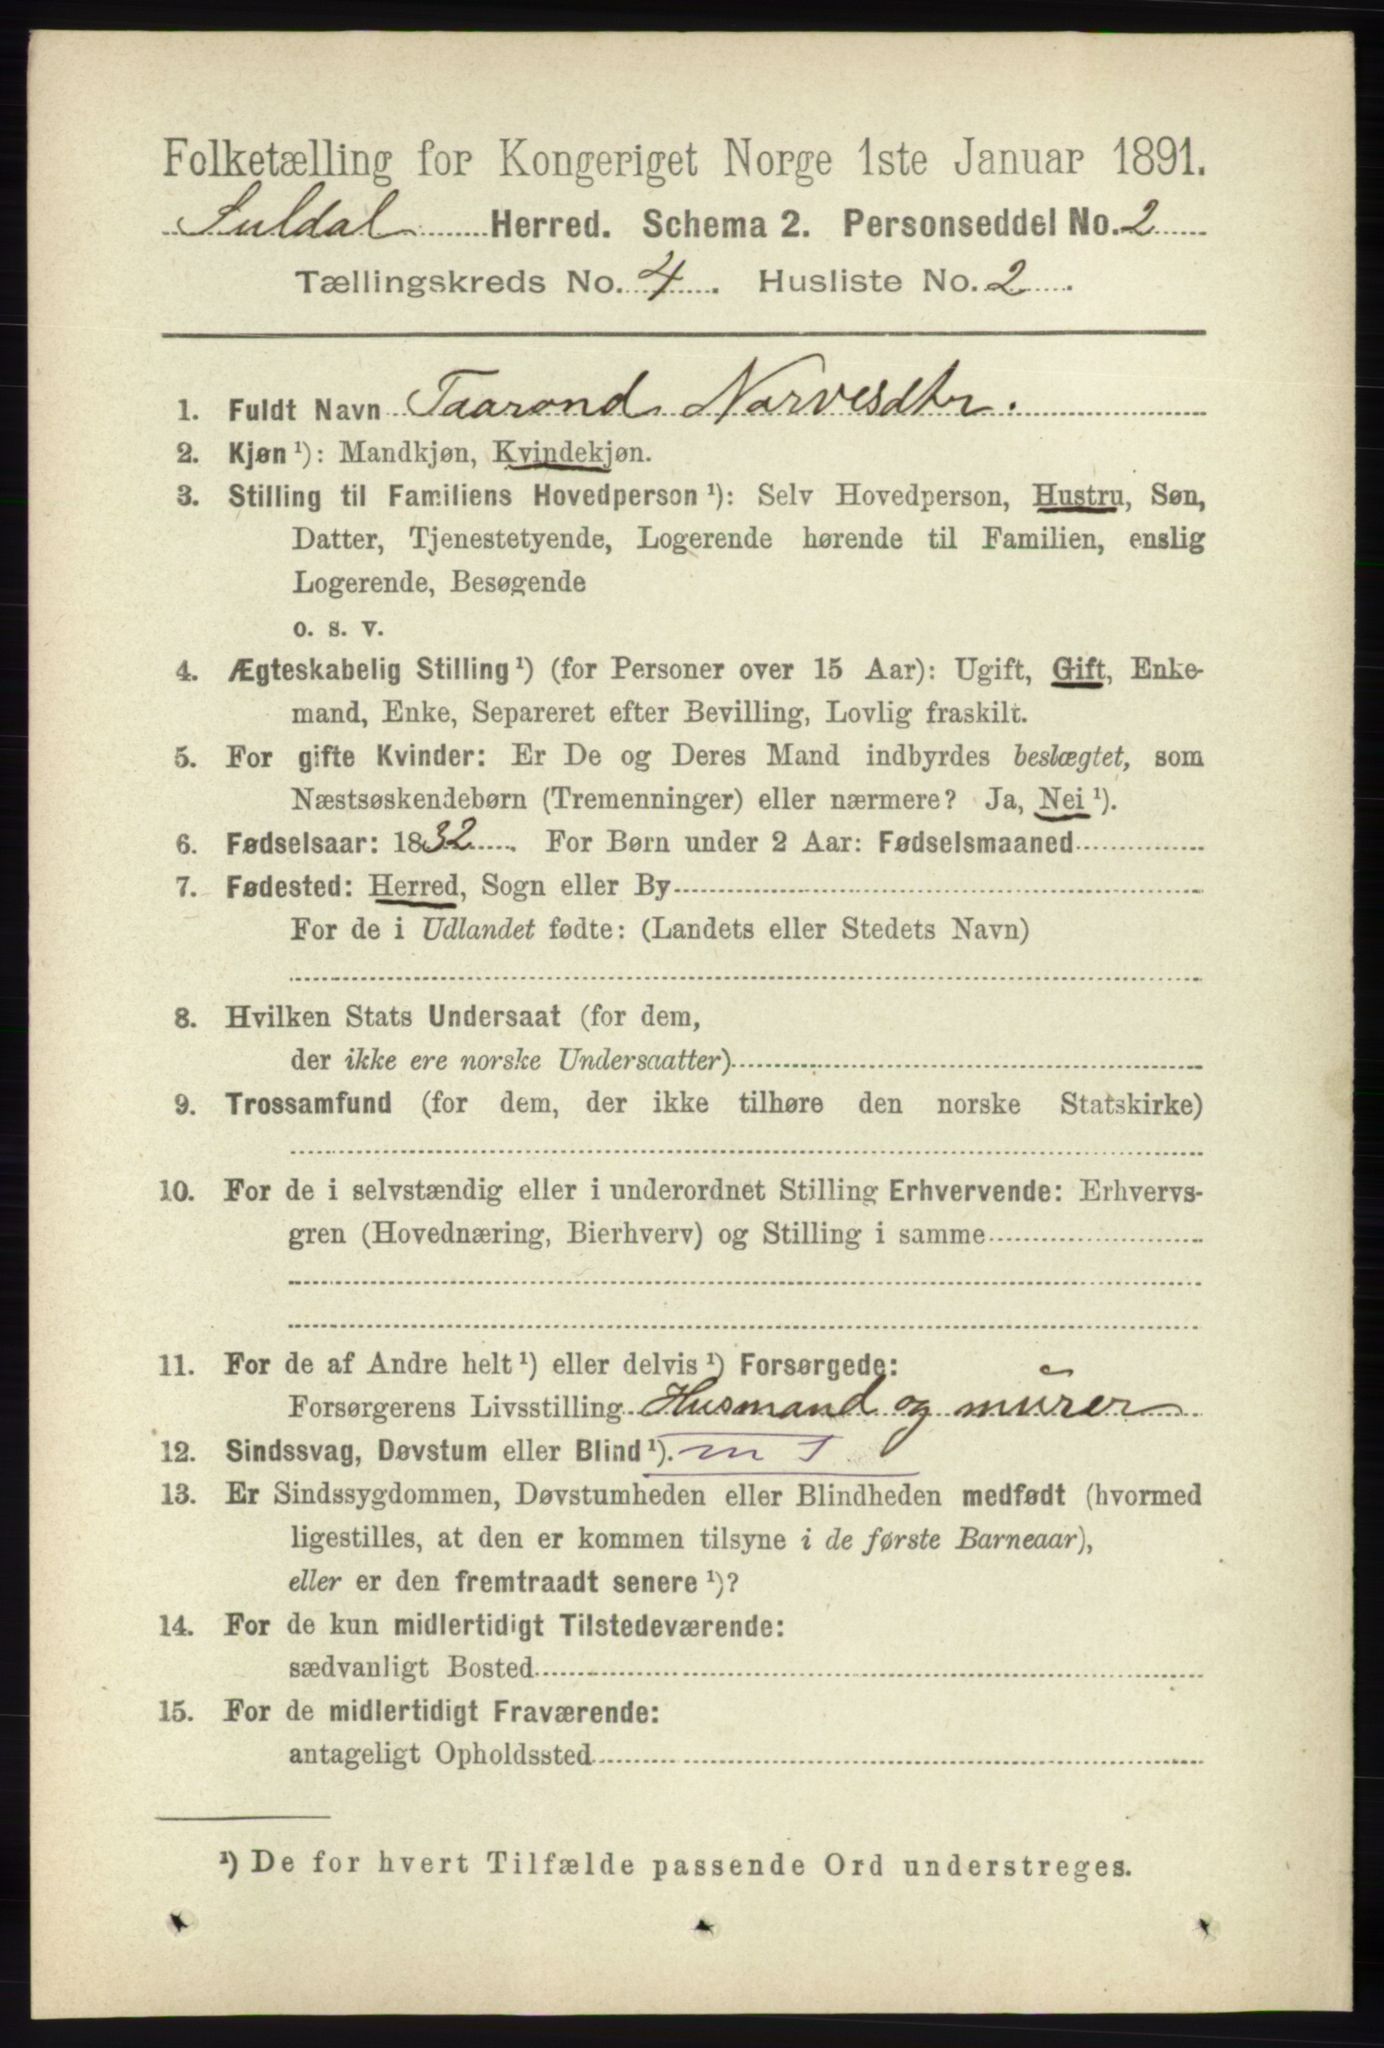 Folketælling for Kongeriget Norge 1ste Januar 1891.
Suldal Herred. Schema 2. Personseddel No. 2
Tællingskreds No. 4. Husliste No. 2.
1. Fuldt Navn Taarond Narvesdtr.
2. Kjøn ¹): Mandkjøn, Kvindekjøn.
3. Stilling til Familiens Hovedperson ¹): Selv Hovedperson, Hustru, Søn,
Datter, Tjenestetyende, Logerende hørende til Familien, enslig
Logerende, Besøgende
o. s. v.
4. Ægteskabelig Stilling ¹) (for Personer over 15 Aar): Ugift, Gift, Enke-
mand, Enke, Separeret efter Bevilling, Lovlig fraskilt.
5. For gifte Kvinder: Er De og Deres Mand indbyrdes beslægtet, som
Næstsøskendebørn (Tremenninger) eller nærmere? Ja, Nei ¹).
6. Fødselsaar: 1832. For Børn under 2 Aar: Fødselsmaaned
7. Fødested: Herred, Sogn eller By
For de i Udlandet fødte: (Landets eller Stedets Navn)
8. Hvilken Stats Undersaat (for dem,
der ikke ere norske Undersaatter)
9. Trossamfund (for dem, der ikke tilhøre den norske Statskirke)
10. For de i selvstændig eller i underordnet Stilling Erhvervende: Erhvervs-
gren (Hovednæring, Bierhverv) og Stilling i samme
11. For de af Andre helt ¹) eller delvis ¹) Forsørgede:
Forsørgerens Livsstilling Husmand og murer
12. Sindssvag, Døvstum eller Blind ¹).
13. Er Sindssygdommen, Døvstumheden eller Blindheden medfødt (hvormed
ligestilles, at den er kommen tilsyne i de første Barneaar),
eller er den fremtraadt senere ¹)?
14. For de kun midlertidigt Tilstedeværende:
sædvanligt Bosted
15. For de midlertidigt Fraværende:
antageligt Opholdssted
¹) De for hvert Tilfælde passende Ord understreges.